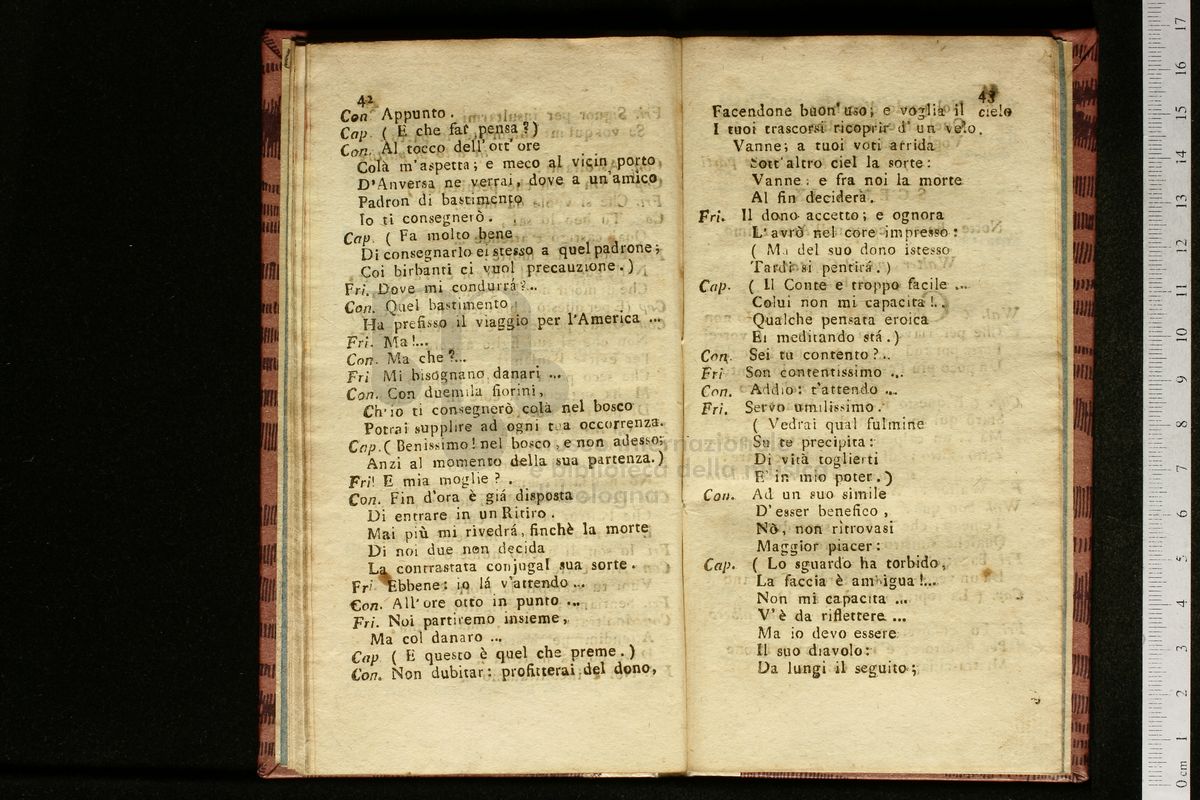 42
Con. Appunto.
Cap. ( E che far pensa? )
Con. Al tocco dell' ott' ore
Colà m'aspetta; e meco al vicin porto
D'Anversa ne verrai, dove a un'amico
Padron di bastimento
Io ti consegnerò.
Cap. ( Fa molto bene
Di consegnarlo ei stesso a quel padrone;
Coi birbanti ci vuol precauzione. )
Fri. Dove mi condurrá?...
Con. Quel bastimento
Ha prefisso il viaggio per l'America ...
Fri. Ma!...
Con. Ma che?...
Fri Mi bisognano danari ...
Con. Con duemila fiorini,
Ch'io ti consegnerò colà nel bosco
Potrai supplire ad ogni tua occorrenza.
Cap. ( Benissimo! nel bosco, e non adesso;
Anzi al momento della sua partenza. )
Fri! E mia moglie? .
Con. Fin d'ora è giá disposta
Di entrare in un Ritiro.
Mai più mi rivedrá, finchè la morte
Di noi due non decida
La contrastata conjugal sua sorte.
Fri. Ebbene: io lá v'attendo ...
Con. All' ore otto in punto ...
Fri. Noi partiremo insieme,
Ma col danaro ...
Cap ( E questo è quel che preme. )
Con. Non dubitar: profitterai del dono,
43
Facendone buon' uso; e voglia il cielo
I tuoi trascorsi ricoprir d' un velo.
Vanne; a tuoi voti arrida
Sott'altro ciel la sorte:
Vanne: e fra noi la morte
Al fin deciderà.
Fri. Il dono accetto; e ognora
L'avrò nel core impresso:
( Ma del suo dono istesso
Tardi si pentirá. )
Cap. ( Il Conte e troppo facile ...
Colui non mi capacita!..
Qualche pensata eroica
Ei meditando stá. )
Con. Sei tu contento?..
Fri Son contentissimo ...
Con. Addio: t'attendo ...
Fri. Servo umilissimo.
( Vedrai qual fulmine
Su te precipita:
Di vità toglierti
E' in mio poter. )
Con. Ad un suo simile
D'esser benefico,
Nò, non ritrovasi
Maggior piacer:
Cap. ( Lo sguardo ha torbido,
La faccia è ambigua!...
Non mi capacita ...
V'è da riflettere ...
Ma io devo essere
Il suo diavolo:
Da lungi il seguito;